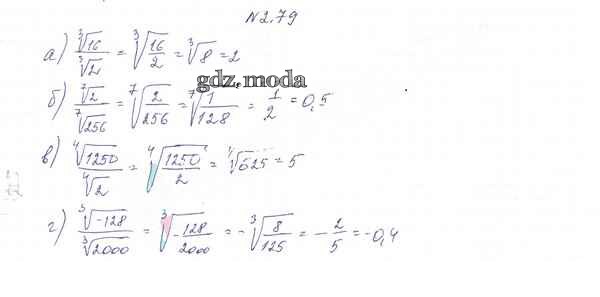 N2.79
а) ∛16/∛2 = ∛(16/2) = ∛8 = 2
gdz.moda
б) ⁷√2/⁷√256 = ⁷√(2/256) = ⁷√(1/128) = 1/2 = 0,5
в) ⁴√1250/⁴√2 = ⁴√(1250/2) = ⁴√625 = 5
г) ∛-128/∛2000 = ∛(-128/2000) = -∛(8/125) = -2/5 = -0,4